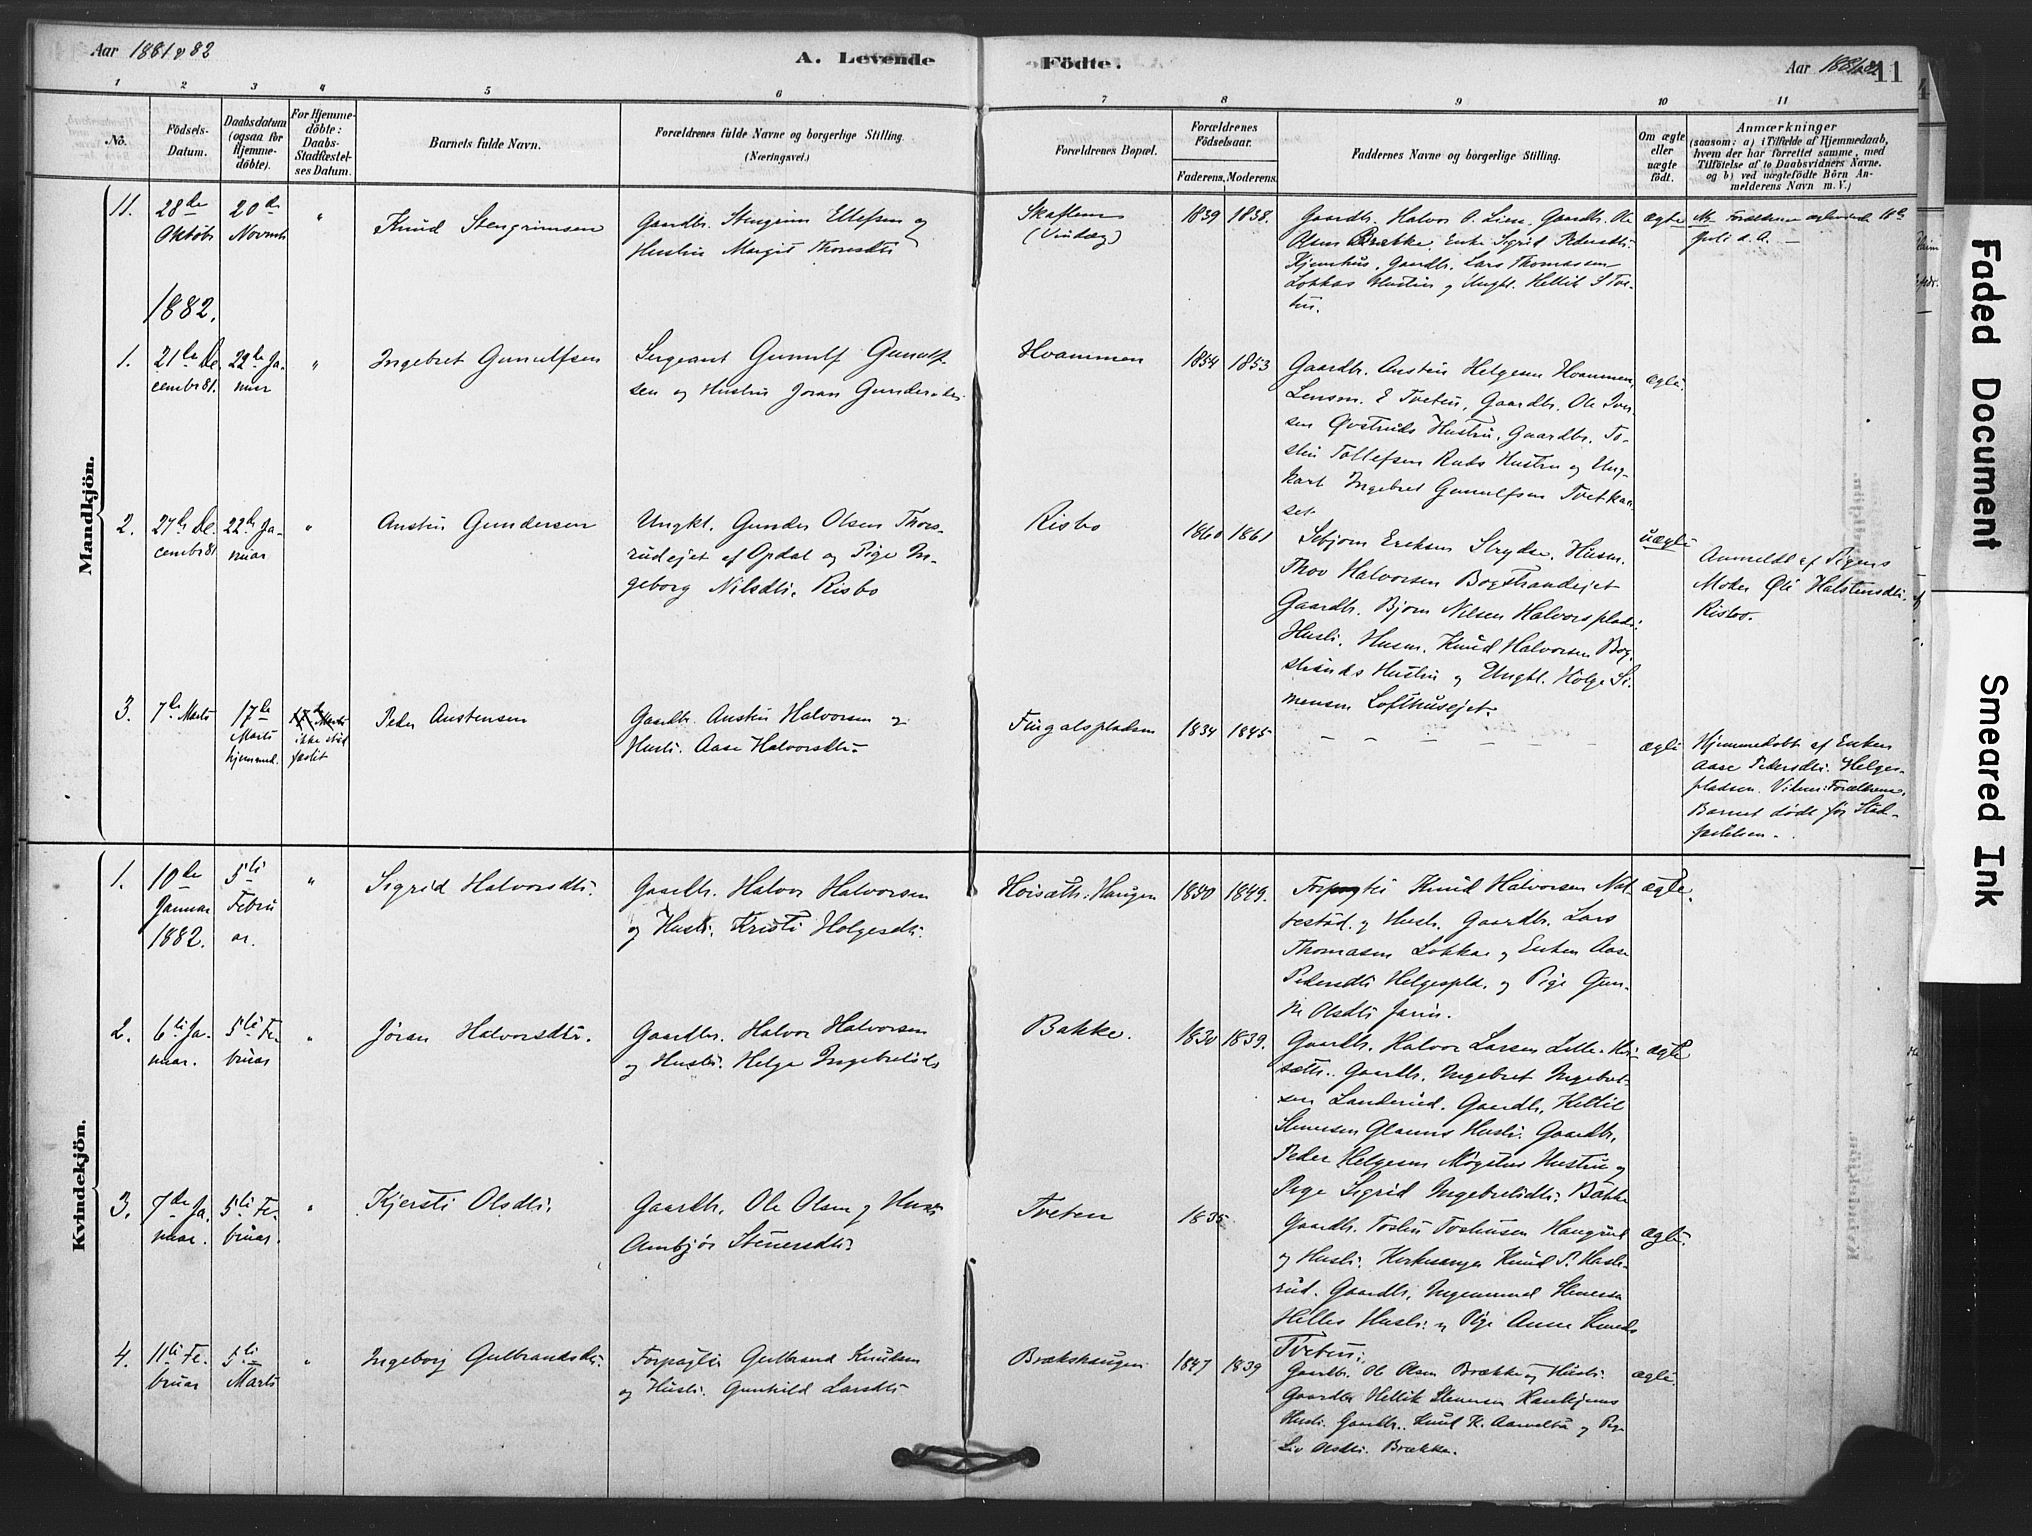 Aar 1881 & 82
A. Levende
Födte.
Aar 1881 & 82.
11
1 2 3 4 5 6 7 8 9 10 11
No.
Födsels-
Datum.
Daabsdatum
(ogsaa for
Hjemme-
döbte).
For Hjemme-
döbte:
Daabs-
Stadfæstel-
ses Datum.
Barnets fulde Navn.
Forældrenes fulde Navne og borgerlige Stilling.
(Næringsvei.)
Forældrenes Bopæl.
Forældrenes
Födselsaar.
Faderens.
Moderens.
Faddernes Navne og borgerlige Stilling.
Om ægte
eller
uægte
födt.
Anmærkninger
(saasom: a) i Tilfælde af Hjemmedaab,
hvem der har forrettet samme, med
Tilföielse af to Daabsvidners Navne.
og b) ved uægtefödte Börn An-
melderens Navn m. V.)
Mandkjön.
11.
28de
Oktobr
20de
Novmb
"
Knud Stengrimsen
Gaardbr. Stengrim Ellefsen og
Hustru Margit Thoresdtr
Skaflem
(Vindeg)
1839 1838.
Gaardbr. Halvor O. Lien, Gaardbr. Ole
Olsen Brække. Enke Sigrid Pedersdtr.
Kjemhus. Gaardbr. Lars Thomassen
Lokkas Hustru og Ungk. Kittil S Tve-
ten.
ægte
Juli d. A. –
1882.
1.
21de De-
cembr 81.
29de Ja-
nuar
"
Ingebret Gunulfsen
Sergeant Gunulf Gunulf-
sen og Hustru Joran Gundersdtr.
Hvammen
1854 1853
Gaardbr. Austen Helgesen Hvammen,
Lensm. E Tveten, Gaardbr. Ole Iver-
sen Qvstruds Hustru, Gaardbr. To-
sten Tollefsen Ruds Hustru og Ung-
kart Ingebret Gunulfsen Tvetkaa-
set.
ægte.
2.
27de De-
cembr 81
22de Ja-
nuar
"
Austen Gundersen
Ungkl. Gunder Olsen Thors-
rudejet af Opdal og Pige In-
geborg Nilsdtr. Risbo
Risbo
1860 1861
Sebjorn Eriksen Strydse, Husm.
Thov Halvorsen Bogstrandejet
Gaardbr. Bjorn Nilsen Halvorsplads.
Hustr. Husm. Knud Halvorsen Bog-
strands Hustru og Ungkl. Holge Si-
mensen Lofthusejet.
uægte
Anmeldt af Pigens
Moder Øli Halstensdtr.
Risbo.
3.
7de Marts
17de
Marts
hjemmed.
17de Marts
ikke stad
fæstet
Peder Austensen
Gaardbr. Austen Halvorsen og
Hustr. Aase Halvorsdtr.
Fingalspladsen
1834 1845
– – – – – – –
ægte
Hjemmedobt af Enken
Aase Pedersdtr. Helges-
pladsen. Vidner: Forældrene.
Barnet døde før Stad-
fæstelsen.
Kvindekjön.
1.
10de
Januar
1882.
5te
Febru
ar.
"
Sigrid Halvorsdtr.
Gaardbr. Halvor Halvorsen
og Hustr. Kristi Holgesdtr.
Hoisæth: Haugen
1850 1849.
Forpagter Knud Halvorsen Nat-
testad. og Hustr. Gaardbr. Lars
Thomasen Lokka og Enken Aase
Pedersdtr Helgespld. og Pige Gun-
Olsdtr Jarin.
ægte.
2.
6te Ja-
nuar.
5te Fe-
bruar
"
Jøran Halvorsdtr.
Gaardbr. Halvor Halvorsen
og Hustr. Helga Ingebretsds
Bakke.
1830 1839.
Gaardbr. Halvor Larsen Lille-Hoi-
sæth. Gaardbr. Ingebret Ingebret-
sen Landerud. Gaardbr. Kittil
Stenersen Glaims Hustr. Gaardbr.
Peder Helgesen Møgstus Hustru og
Pige Sigrid Ingebretsdtr. Bakke
ægte
3.
7de Ja-
nuar.
5te Fe-
bruar.
"
Kjersti Olsdtr.
Gaardbr. Ole Olsen og Hustr
Ambjør Stenersdtr.
Tveten
1835
Gaardbr. Tosten Tostensen Haugrud
og Hustr. Kirkesanger Knud T. Hasle-
rud. Gaardbr. Stenersen
Helles Hustr. og Pige Anne Knuds
Tveten.
ægte.
4.
11te Fe-
bruar
5te
Marts
"
Ingeborg Gulbrandsdtr.
Forpagter Gulbrand Knudsen
og Hustr. Gunhild Larsdtr
Brækshaugen
1847 1839
Gaardbr. Ole Olsen Brække og Hustr.
Gaardbr Hellik Stenersen
Hustr. Gaardbr. Knud K. og Pige
Liv Olsdtr. Brække.
ægte.
Faded Document
Smeared Ink